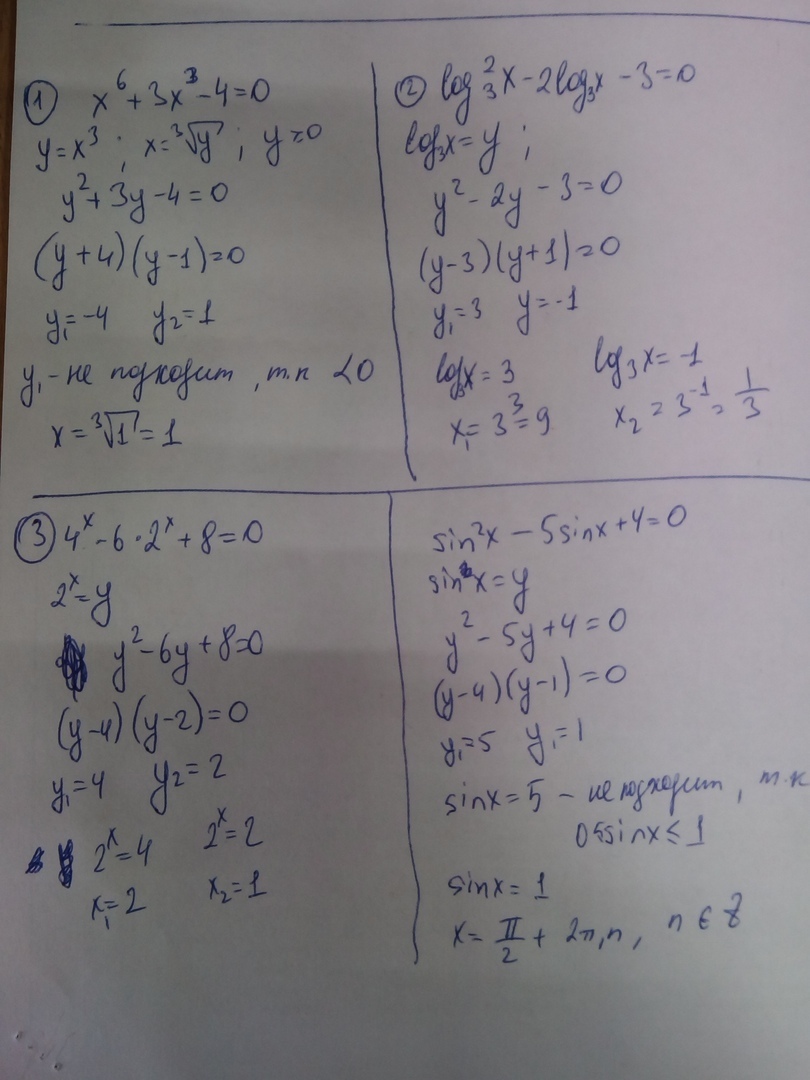 ① x⁶ + 3x³ - 4 = 0
y = x³ ; x = ³√y ; y ≥ 0
y² + 3y - 4 = 0
(y + 4)(y - 1) = 0
y₁ = -4 y₂ = 1
y₁ - не подходит, т.к < 0
x = ³√1 = 1
② log₃²x - 2log₃x - 3 = 0
log₃x = y ;
y² - 2y - 3 = 0
(y - 3)(y + 1) = 0
y₁ = 3 y = -1
log₃x = 3 log₃x = -1
x₁ = 3³ = 9 x₂ = 3⁻¹ = 1/3
③ 4ˣ - 6 · 2ˣ + 8 = 0
2ˣ = y
y² - 6y + 8 = 0
(y - 4)(y - 2) = 0
y₁ = 4 y₂ = 2
2ˣ = 4 2ˣ = 2
x₁ = 2 x₂ = 1
sin²x - 5sinx + 4 = 0
sin x = y
y² - 5y + 4 = 0
(y - 4)(y - 1) = 0
y₁ = 5 y₁ = 1
sinx = 5 - не подходит, т.к
0 ≤ sinx ≤ 1
sinx = 1
x = π/2 + 2πn, n ∈ Z